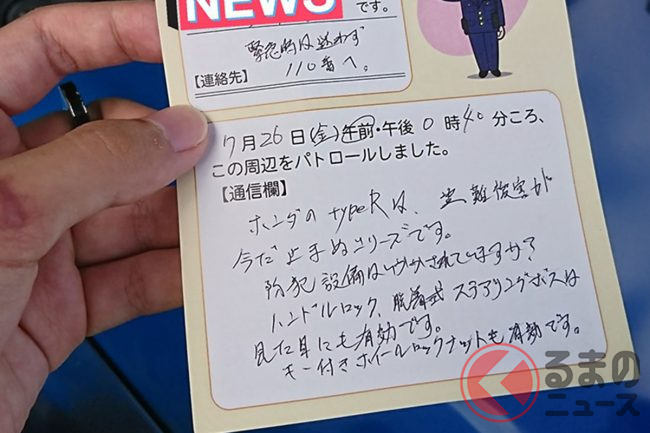 NEWS
です。
緊急時は迷わず
【連絡先】 110番へ。
7月26日(金)午前・午後0時40分ころ、
この周辺をパトロールしました。
【通信欄】
ホンダのtypeRは、盗難被害が
今だ止まぬシリーズです。
防犯設備はいかがされていますか?
ハンドルロック、脱着式ステアリングボスは
見た目にも有効です。
キー付きホイールロックナットも有効です。
くるまの
ニュース